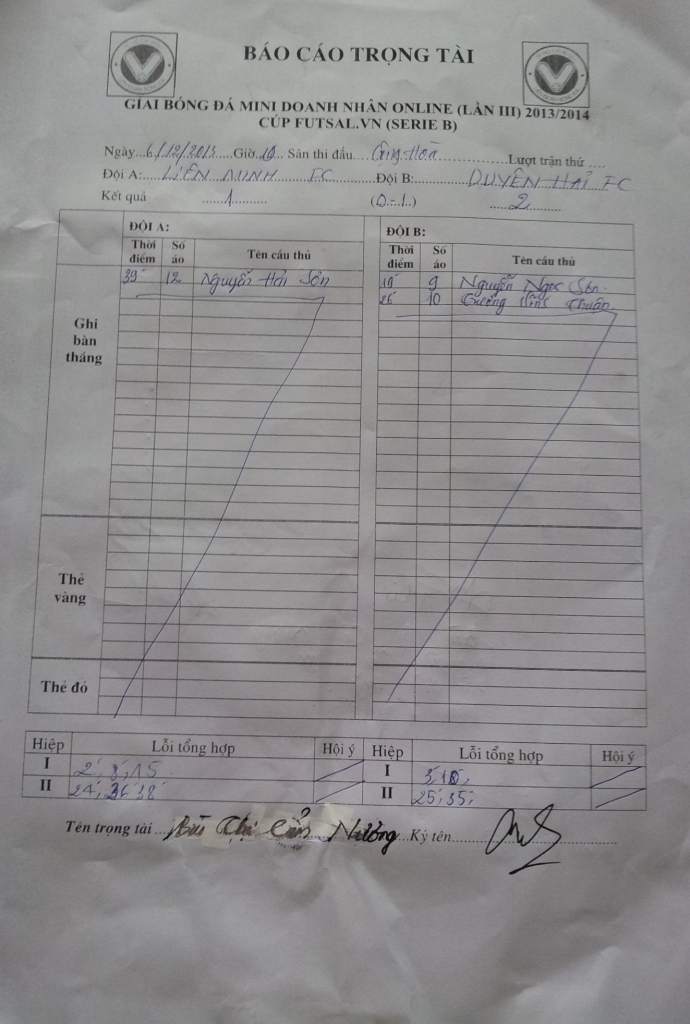 BÁO CÁO TRỌNG TÀI
GIẢI BÓNG ĐÁ MINI DOANH NHÂN ONLINE (LẦN III) 2013/2014
CÚP FUTSAL.VN (SERIE B)
Ngày...6/12/2013.....Giờ.10.. Sân thi đấu.... .......Lượt trận thứ ....
Đội A:....LIÊN MINH FC.......Đội B:........DUYÊN HẢI FC
Kết quả ......1........ (0-1.) ......2........
ĐỘI A: ĐỘI B:
Thời điểm Số áo Tên cầu thủ Thời điểm Số áo Tên cầu thủ
Ghi bàn thắng
39' 12 Nguyễn Hải Sơn 19' 9 Nguyễn Ngọc Sơn
26' 10 Thuận
Thẻ vàng
Thẻ đỏ
Hiệp Lỗi tổng hợp Hội ý Hiệp Lỗi tổng hợp Hội ý
I 2', 8', 15 I 3', 10',
II 24', 36' 38' II 25', 35',
Tên trọng tài ...Bùi Thị Nương...Ký tên